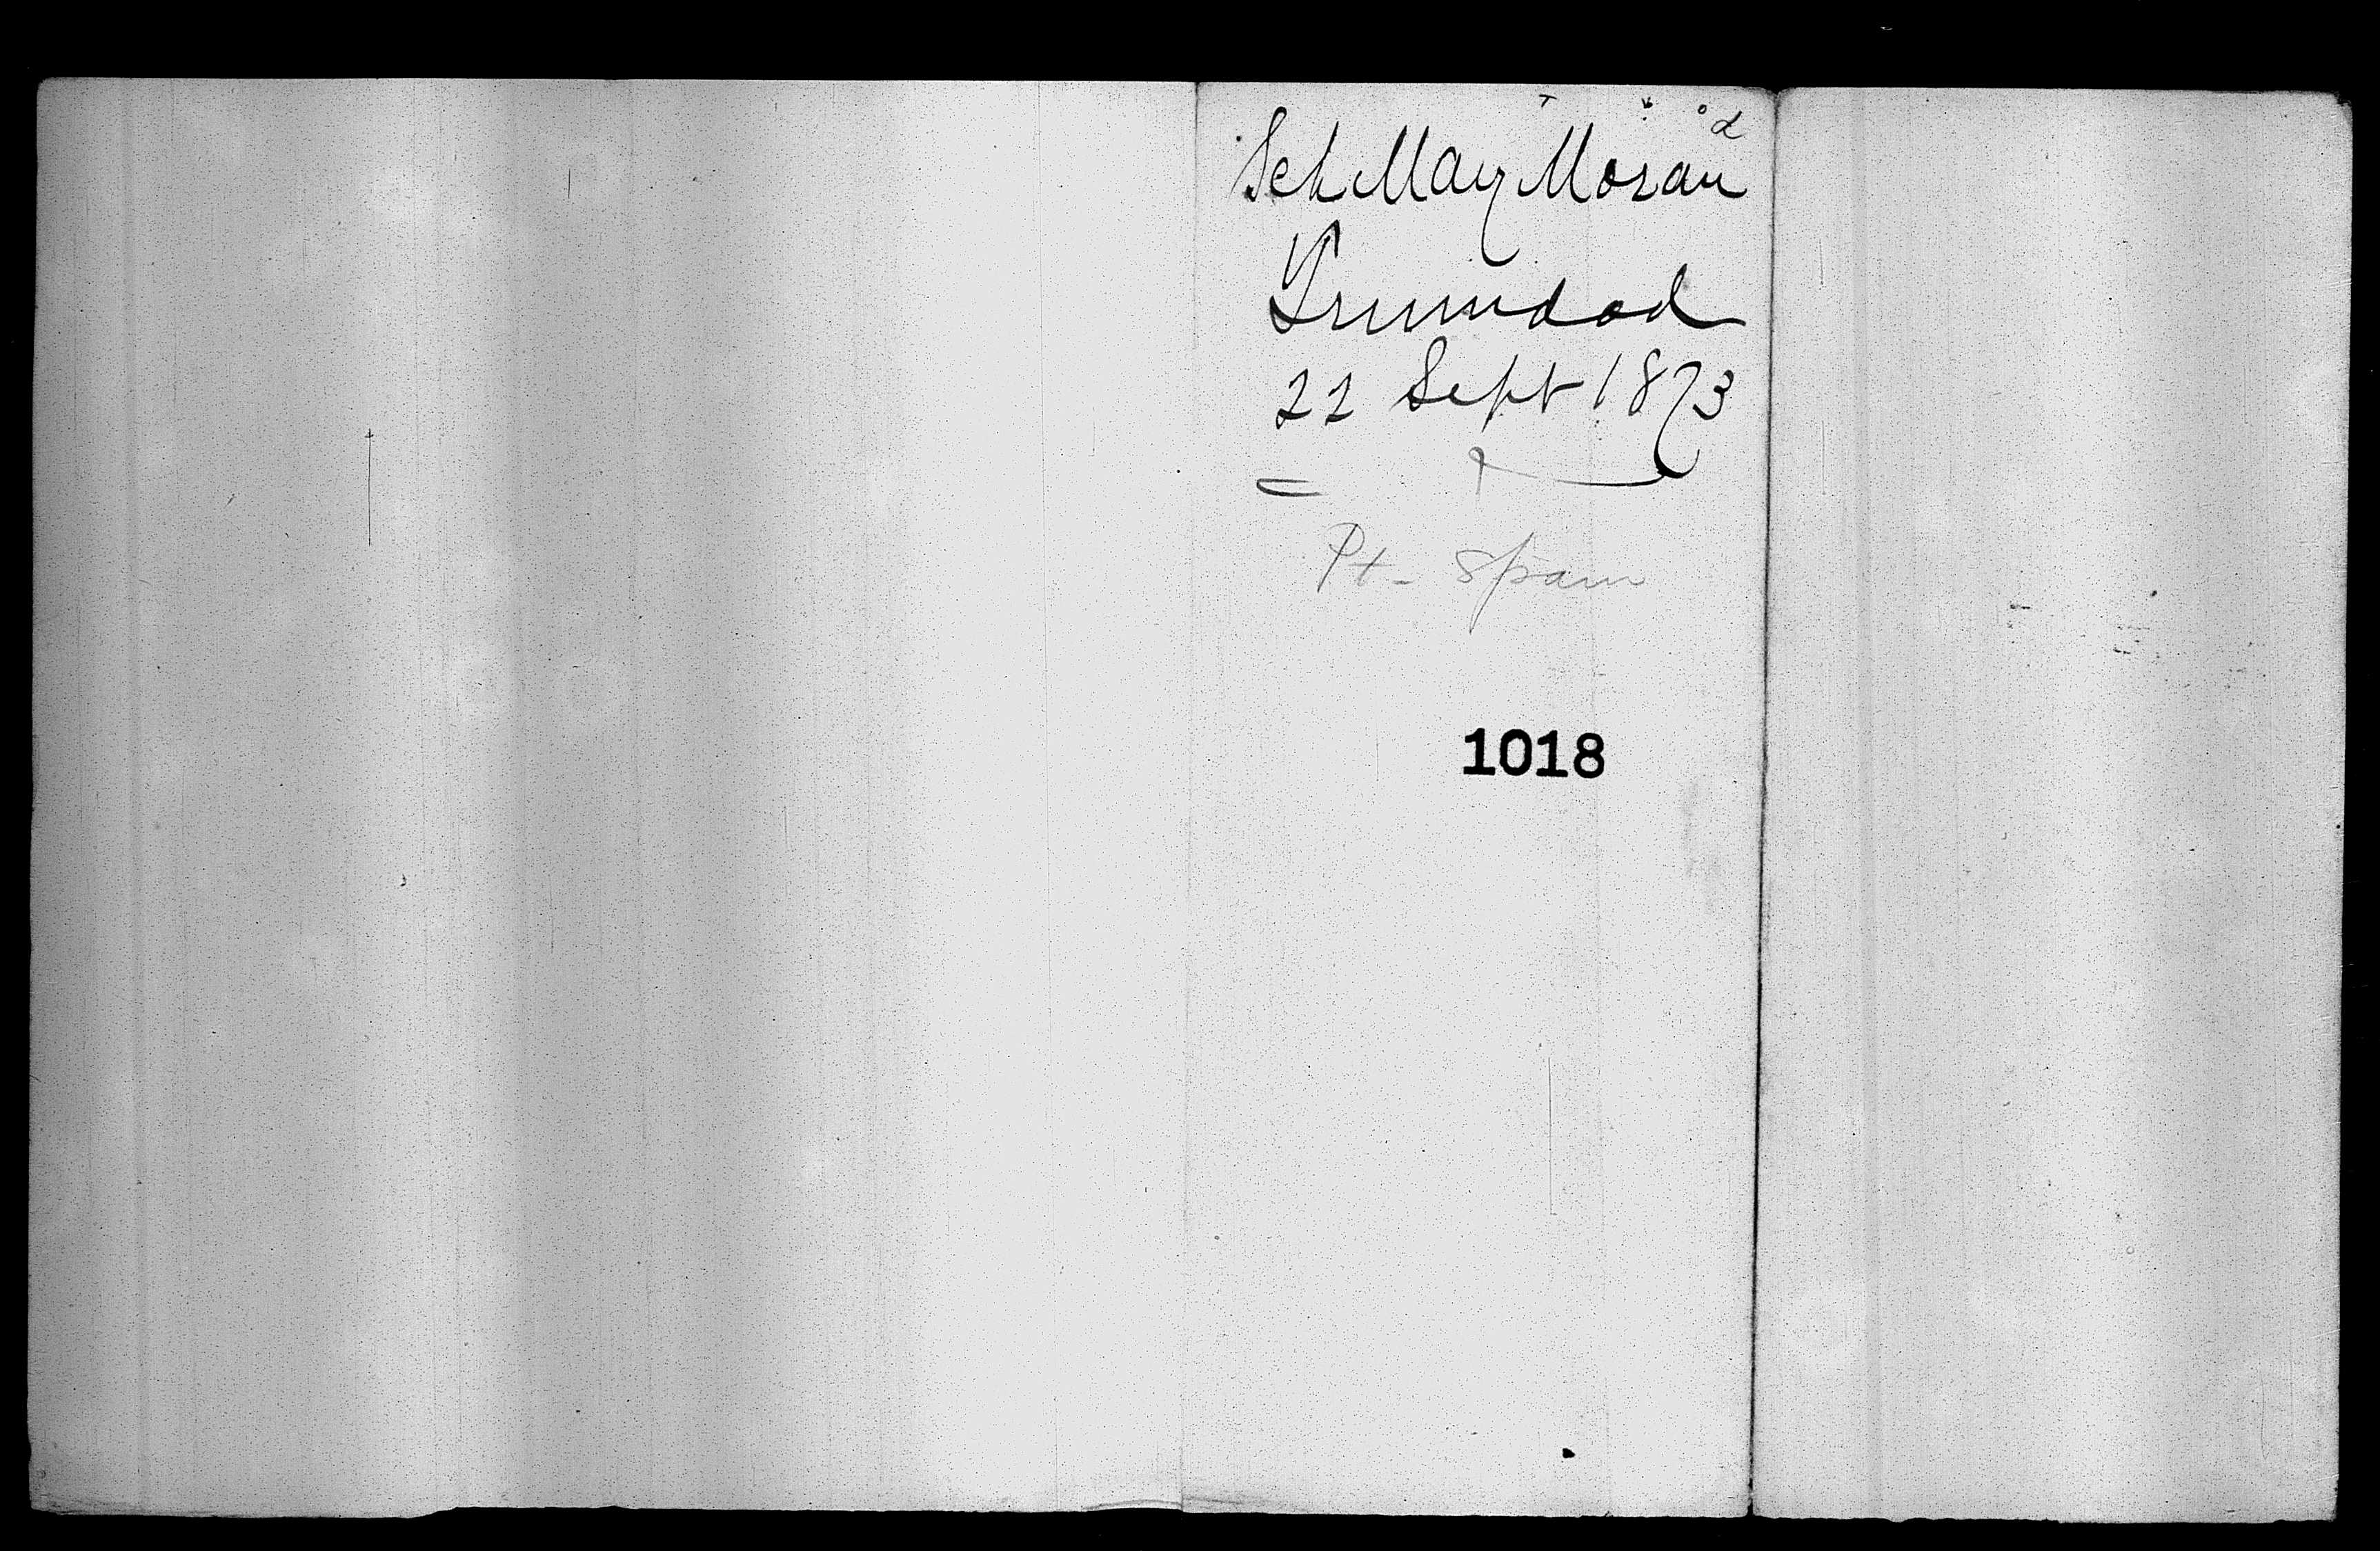 Sch May Moran
Trinidad
22 Sept 1873
Pt-Spain
1018